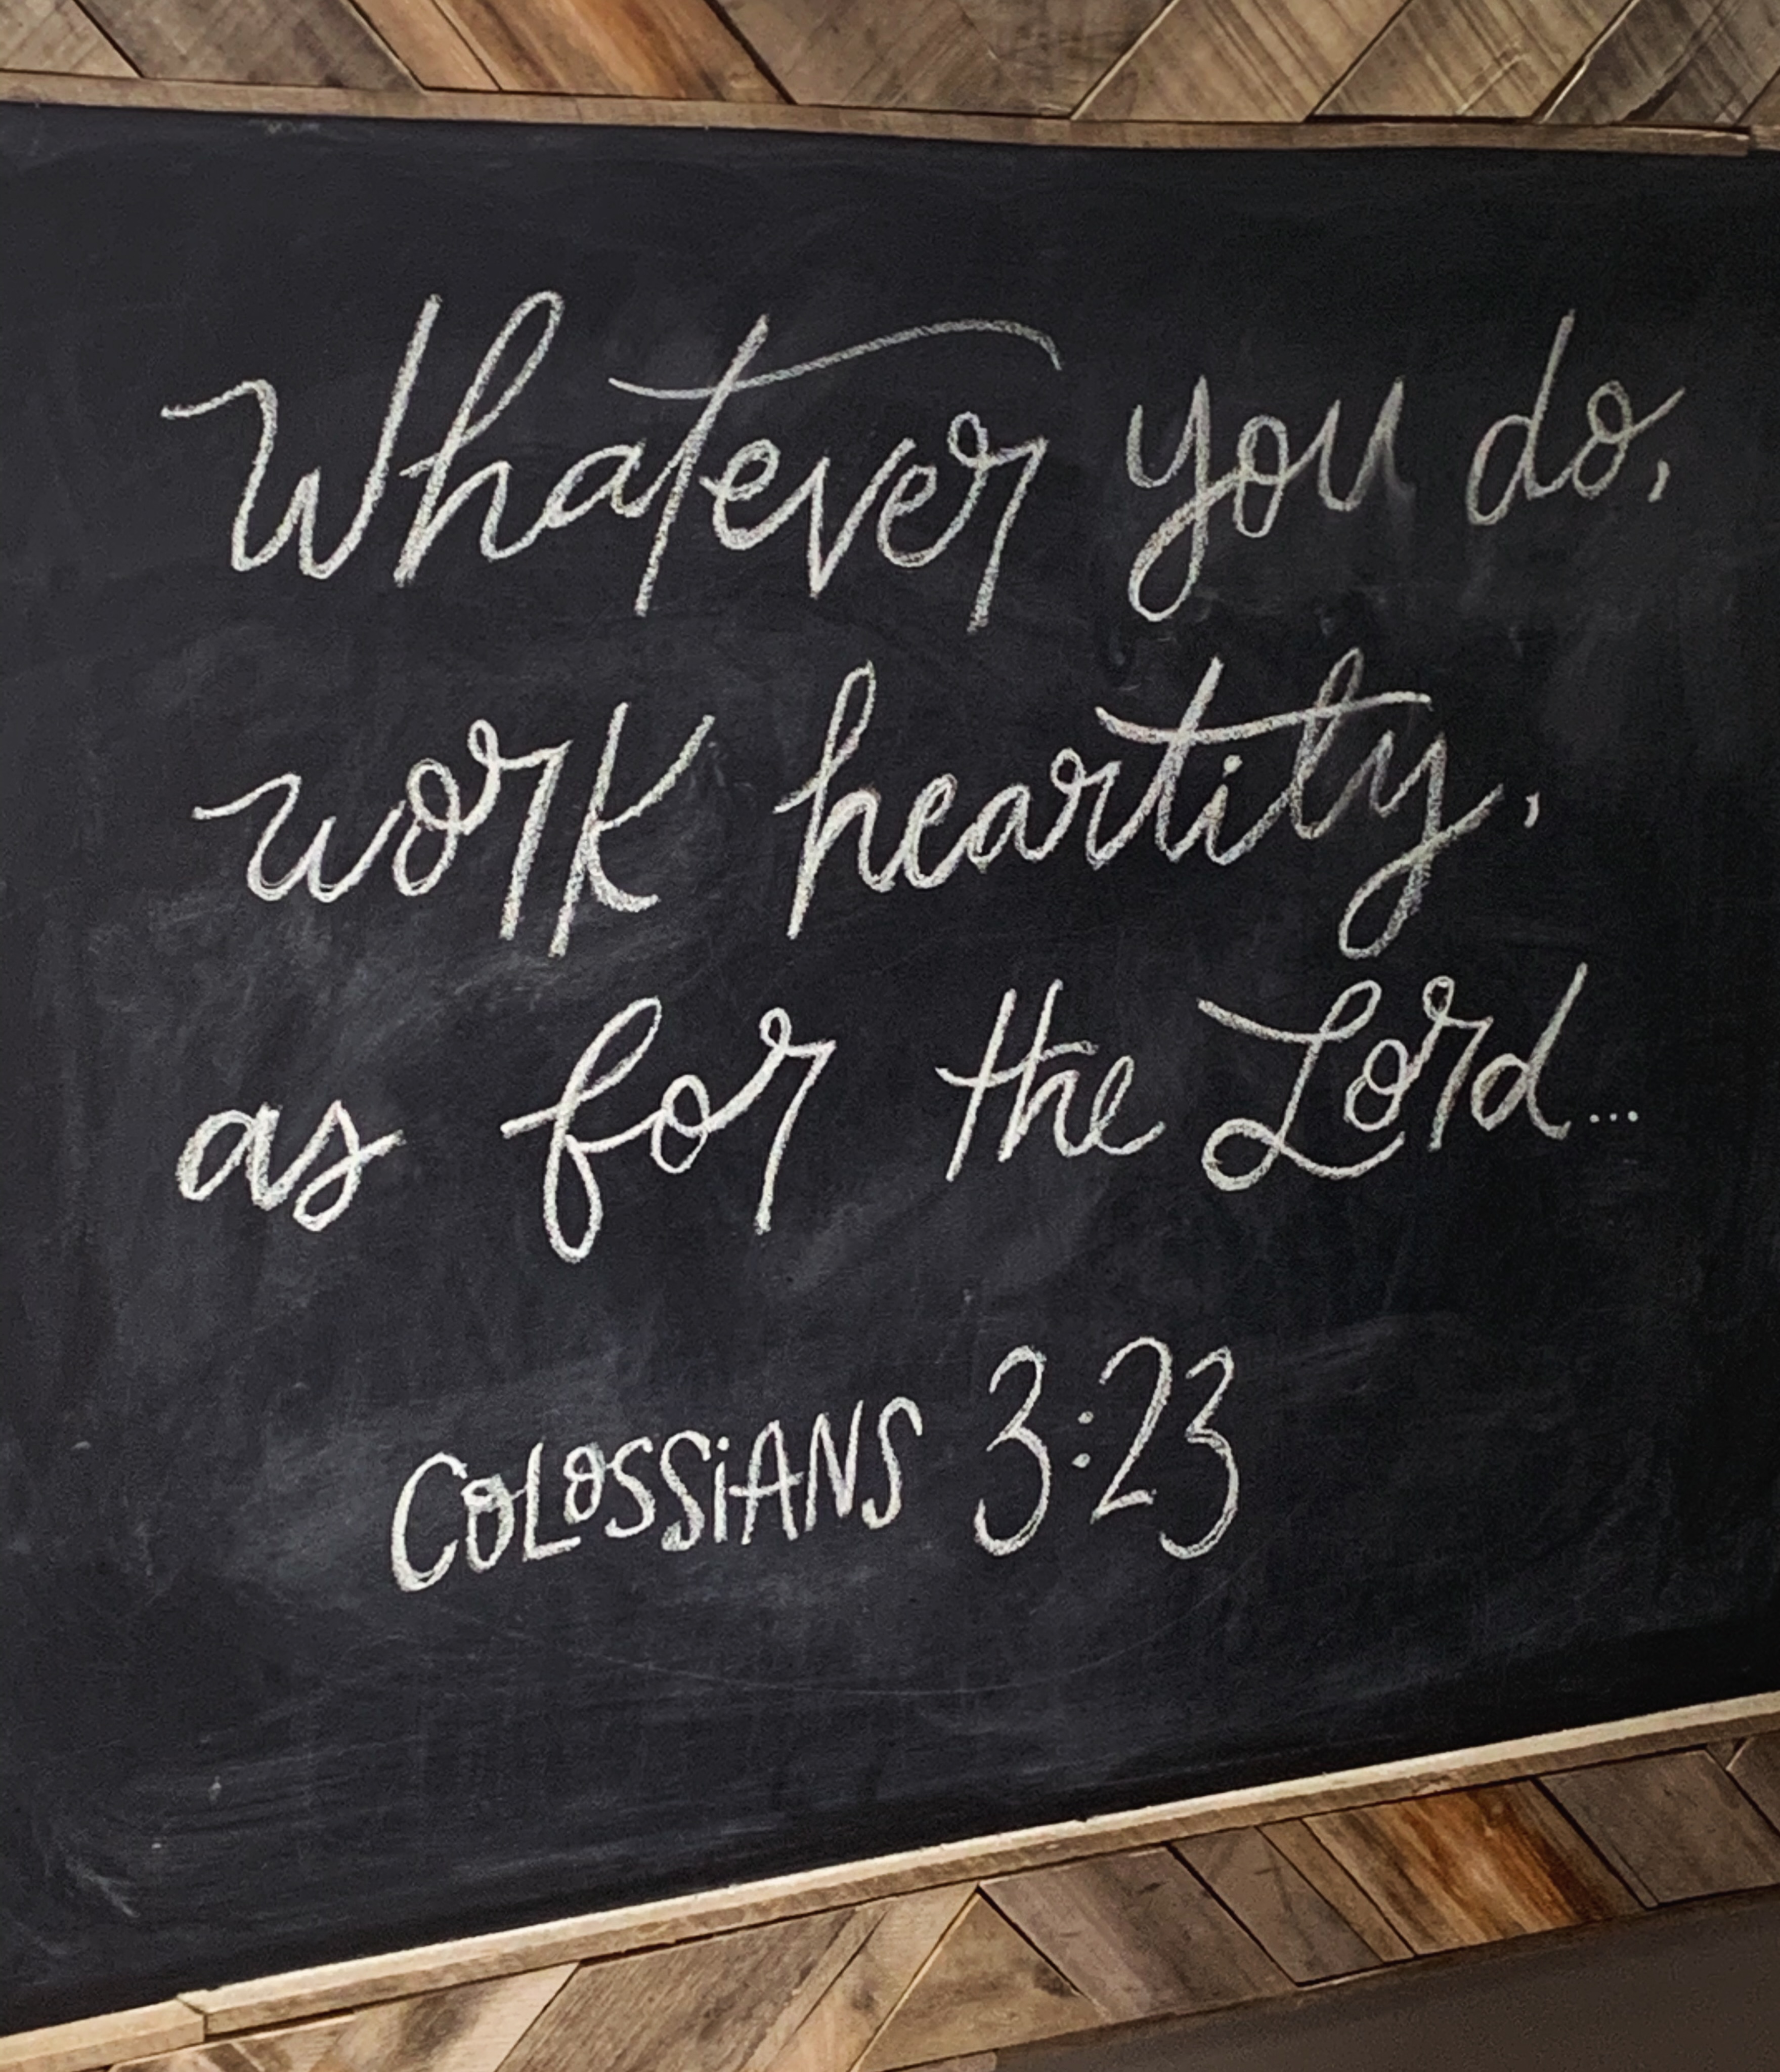 Whatever you do,
work heartily,
as for the Lord...
COLOSSiANS 3:23